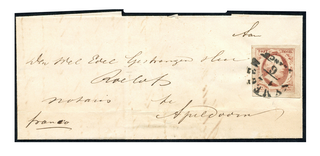 Aan
Den Wel Edel Gestrengen Heer
Roelofs
Notaris
te
franco
Apeldoorn